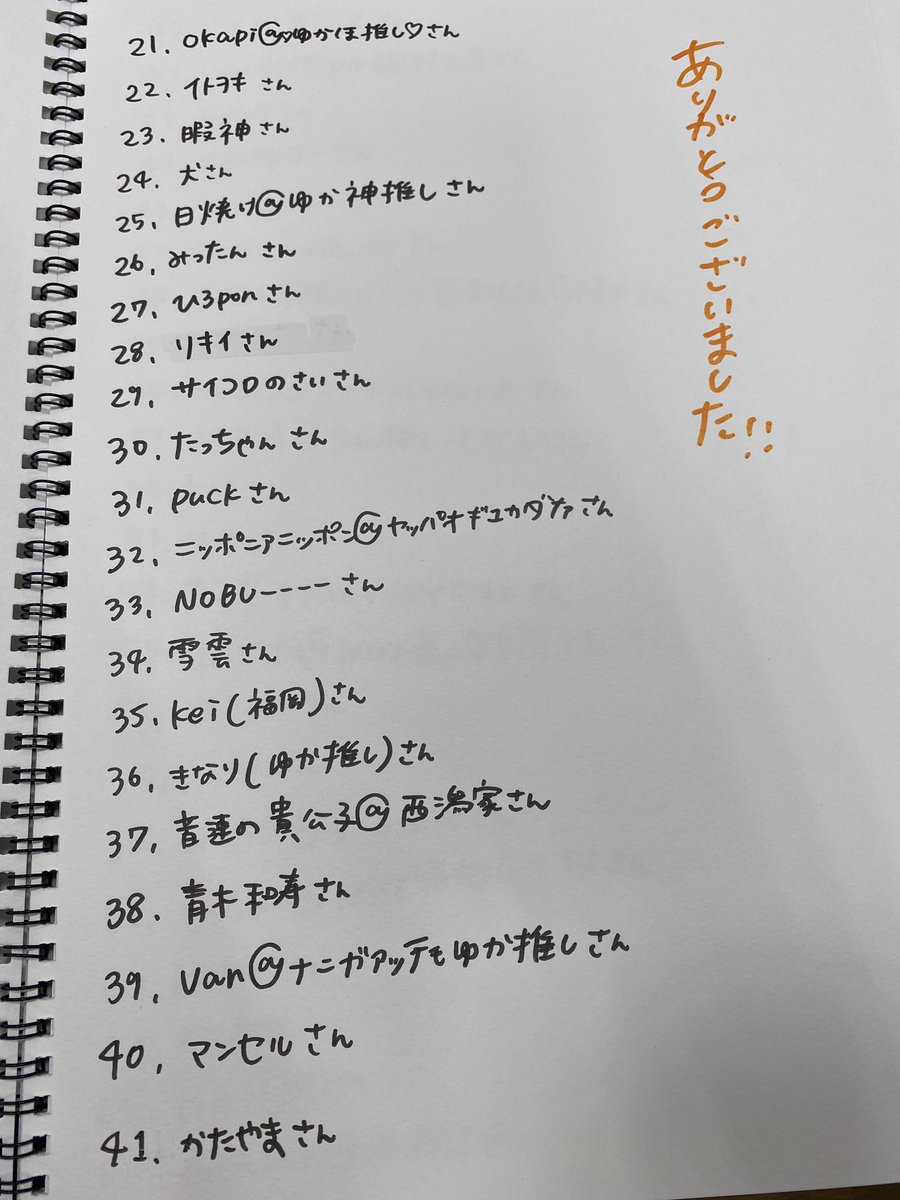 21. okapi@ゆかほ推し♡さん
22. イトヲキさん
23. 暇神さん
24. 犬さん
25. 日焼け@ゆか神推しさん
26. みったんさん
27. ひろponさん
28. リキイさん
29. サイコロのさいさん
30. たっちゃんさん
31. puckさん
32. ニッポニアニッポン@ヤッパオギユカダヤさん
33. NOBU----さん
34. 雪雲さん
35. kei(福岡)さん
36. きなり(ゆか推し)さん
37. 音速の貴公子@西潟家さん
38. 青木和寿さん
39. Van@ナニガアッテモゆか推しさん
40. マンセルさん
41. かたやまさん
ありがとうございました!!